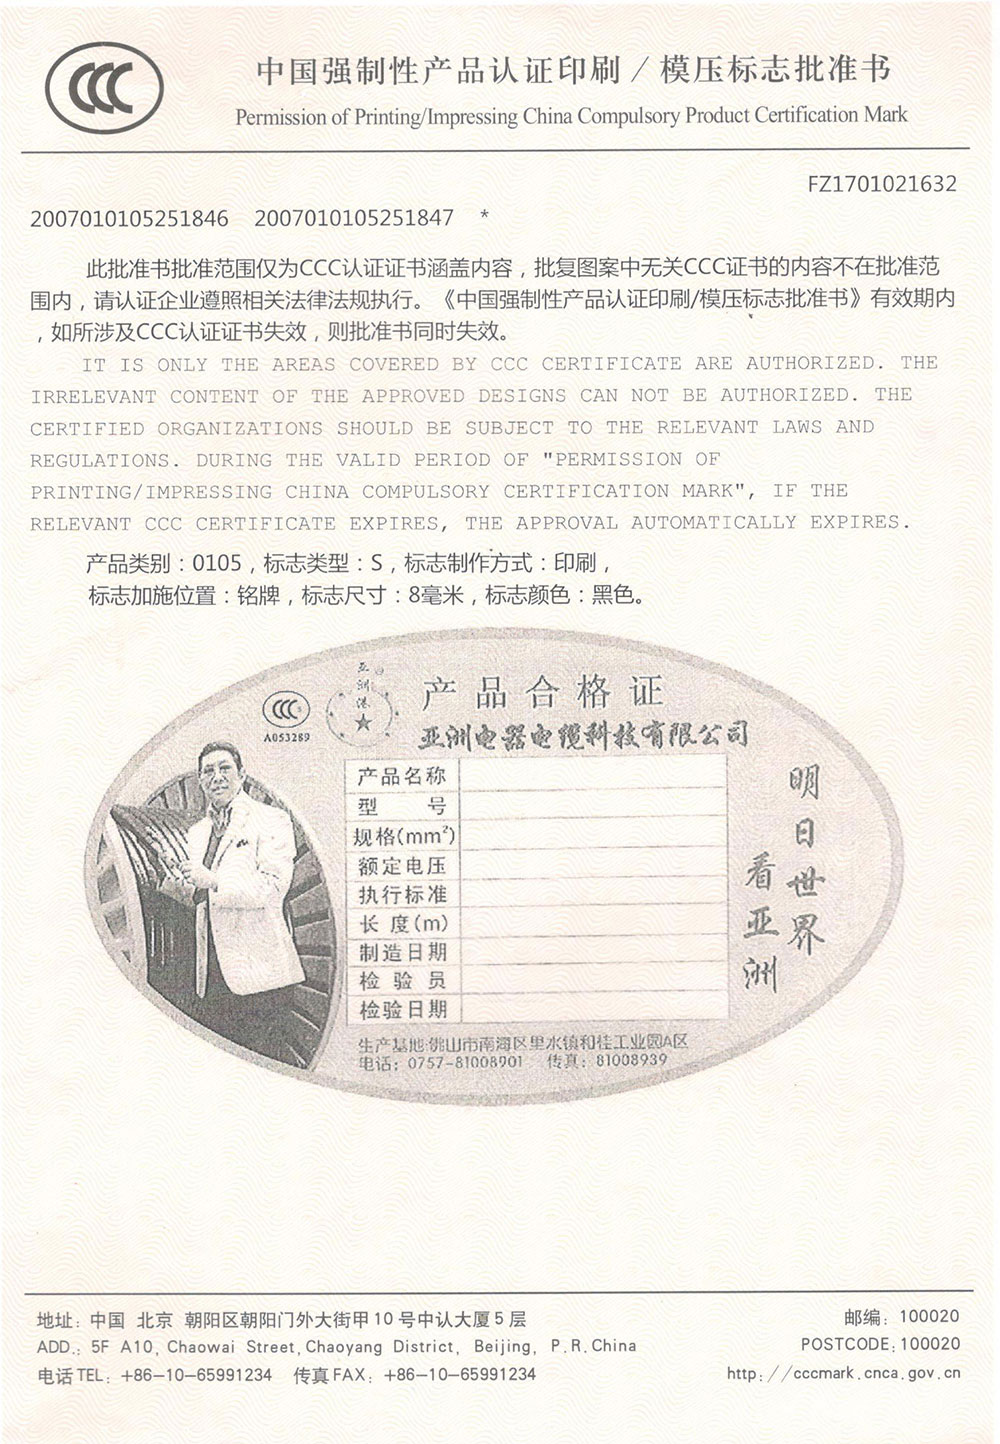 中国强制性产品认证印刷/模压标志批准书
Permission of Printing/Impressing China Compulsory Product Certification Mark
FZ1701021632
2007010105251846 2007010105251847 *
此批准书批准范围仅为CCC认证证书涵盖内容，批复图案中无关CCC证书的内容不在批准范
围内，请认证企业遵照相关法律法规执行。《中国强制性产品认证印刷/模压标志批准书》有效期内
，如所涉及CCC认证证书失效，则批准书同时失效。
IT IS ONLY THE AREAS COVERED BY CCC CERTIFICATE ARE AUTHORIZED. THE
IRRELEVANT CONTENT OF THE APPROVED DESIGNS CAN NOT BE AUTHORIZED. THE
CERTIFIED ORGANIZATIONS SHOULD BE SUBJECT TO THE RELEVANT LAWS AND
REGULATIONS. DURING THE VALID PERIOD OF "PERMISSION OF
PRINTING/IMPRESSING CHINA COMPULSORY CERTIFICATION MARK", IF THE
RELEVANT CCC CERTIFICATE EXPIRES, THE APPROVAL AUTOMATICALLY EXPIRES.
产品类别：0105，标志类型：S，标志制作方式：印刷，
标志加施位置：铭牌，标志尺寸：8毫米，标志颜色：黑色。
CCC S
A053289
亚洲
产品合格证
亚洲电器电缆科技有限公司
产品名称
型 号
规格(mm²)
额定电压
执行标准
长 度(m)
制造日期
检 验 员
检验日期
明日世界
看亚洲
生产基地:佛山市南海区里水镇和桂工业园A区
电话：0757-81008901 传真：81008939
地址：中国 北京 朝阳区朝阳门外大街甲10号中认大厦5层
邮编：100020
ADD.：5F A10, Chaowai Street,Chaoyang District, Beijing, P.R.China
POSTCODE：100020
电话TEL：+86-10-65991234 传真FAX：+86-10-65991234
http：//cccmark.cnca.gov.cn